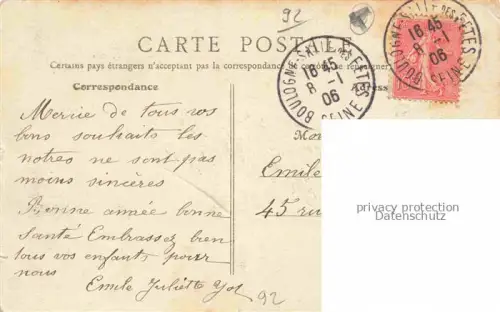 92
CARTE POSTALE
Certains pays étrangers n'acceptent pas la correspondance de ce côté (se renseigner)
Correspondance
Adresse
BOULOGNE-S/MER
18 45
8 -1
06
SEINE
18 45
8 -1
06
SEINE
Merci de tous vos
bons souhaits les
notres ne sont pas
moins sincères
Bonne année bonne
Santé Embrassez bien
tous vos enfants pour
nous
Emile Juliette
92
Emile
45 ru
privacy protection
Datenschutz